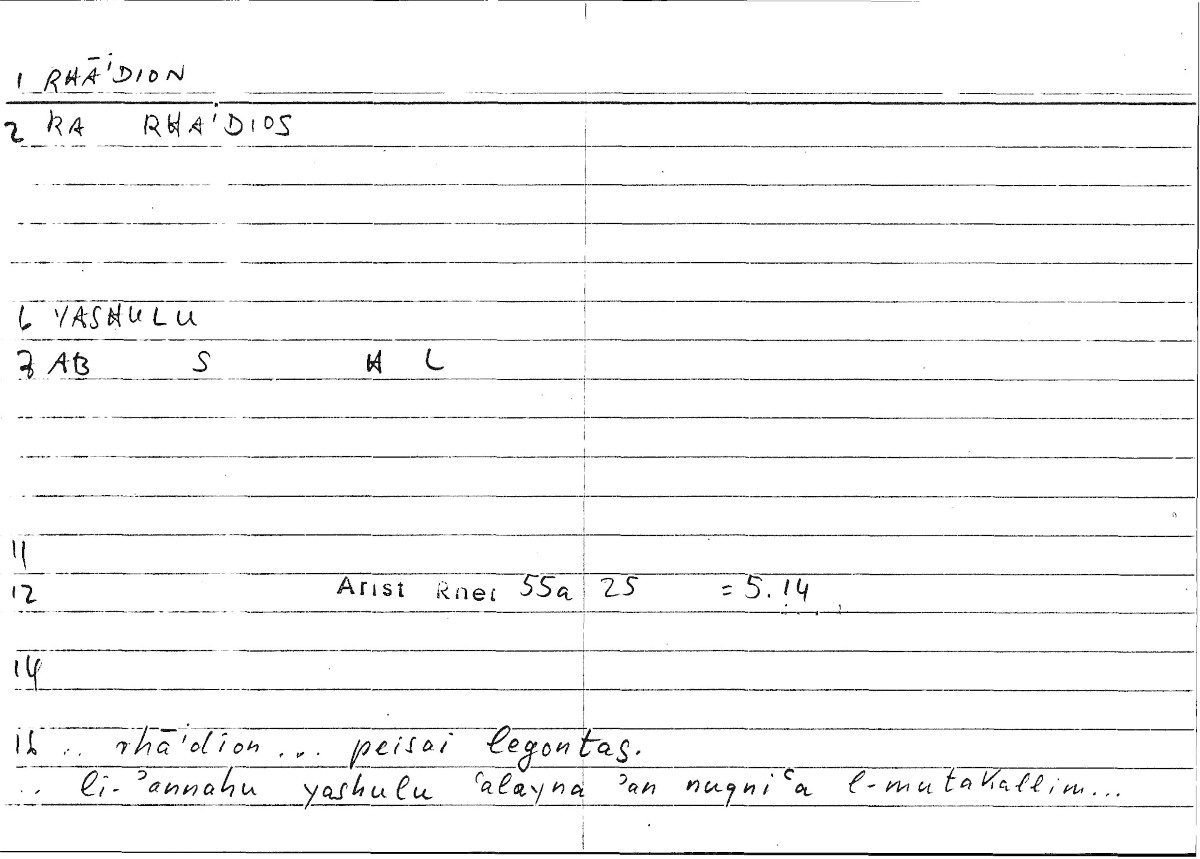 1 RHĀ'DION
2 KA RHA'DIOS
6 YASHULU
7 AB S H L
11
12 Arist Rhet 55a 25 = 5.14
14
16 .. rhā'dion ... peisai legontas.
.. li-ʾannahu yashulu ʿalaynā ʾan nuqniʿa l-mutakallim...